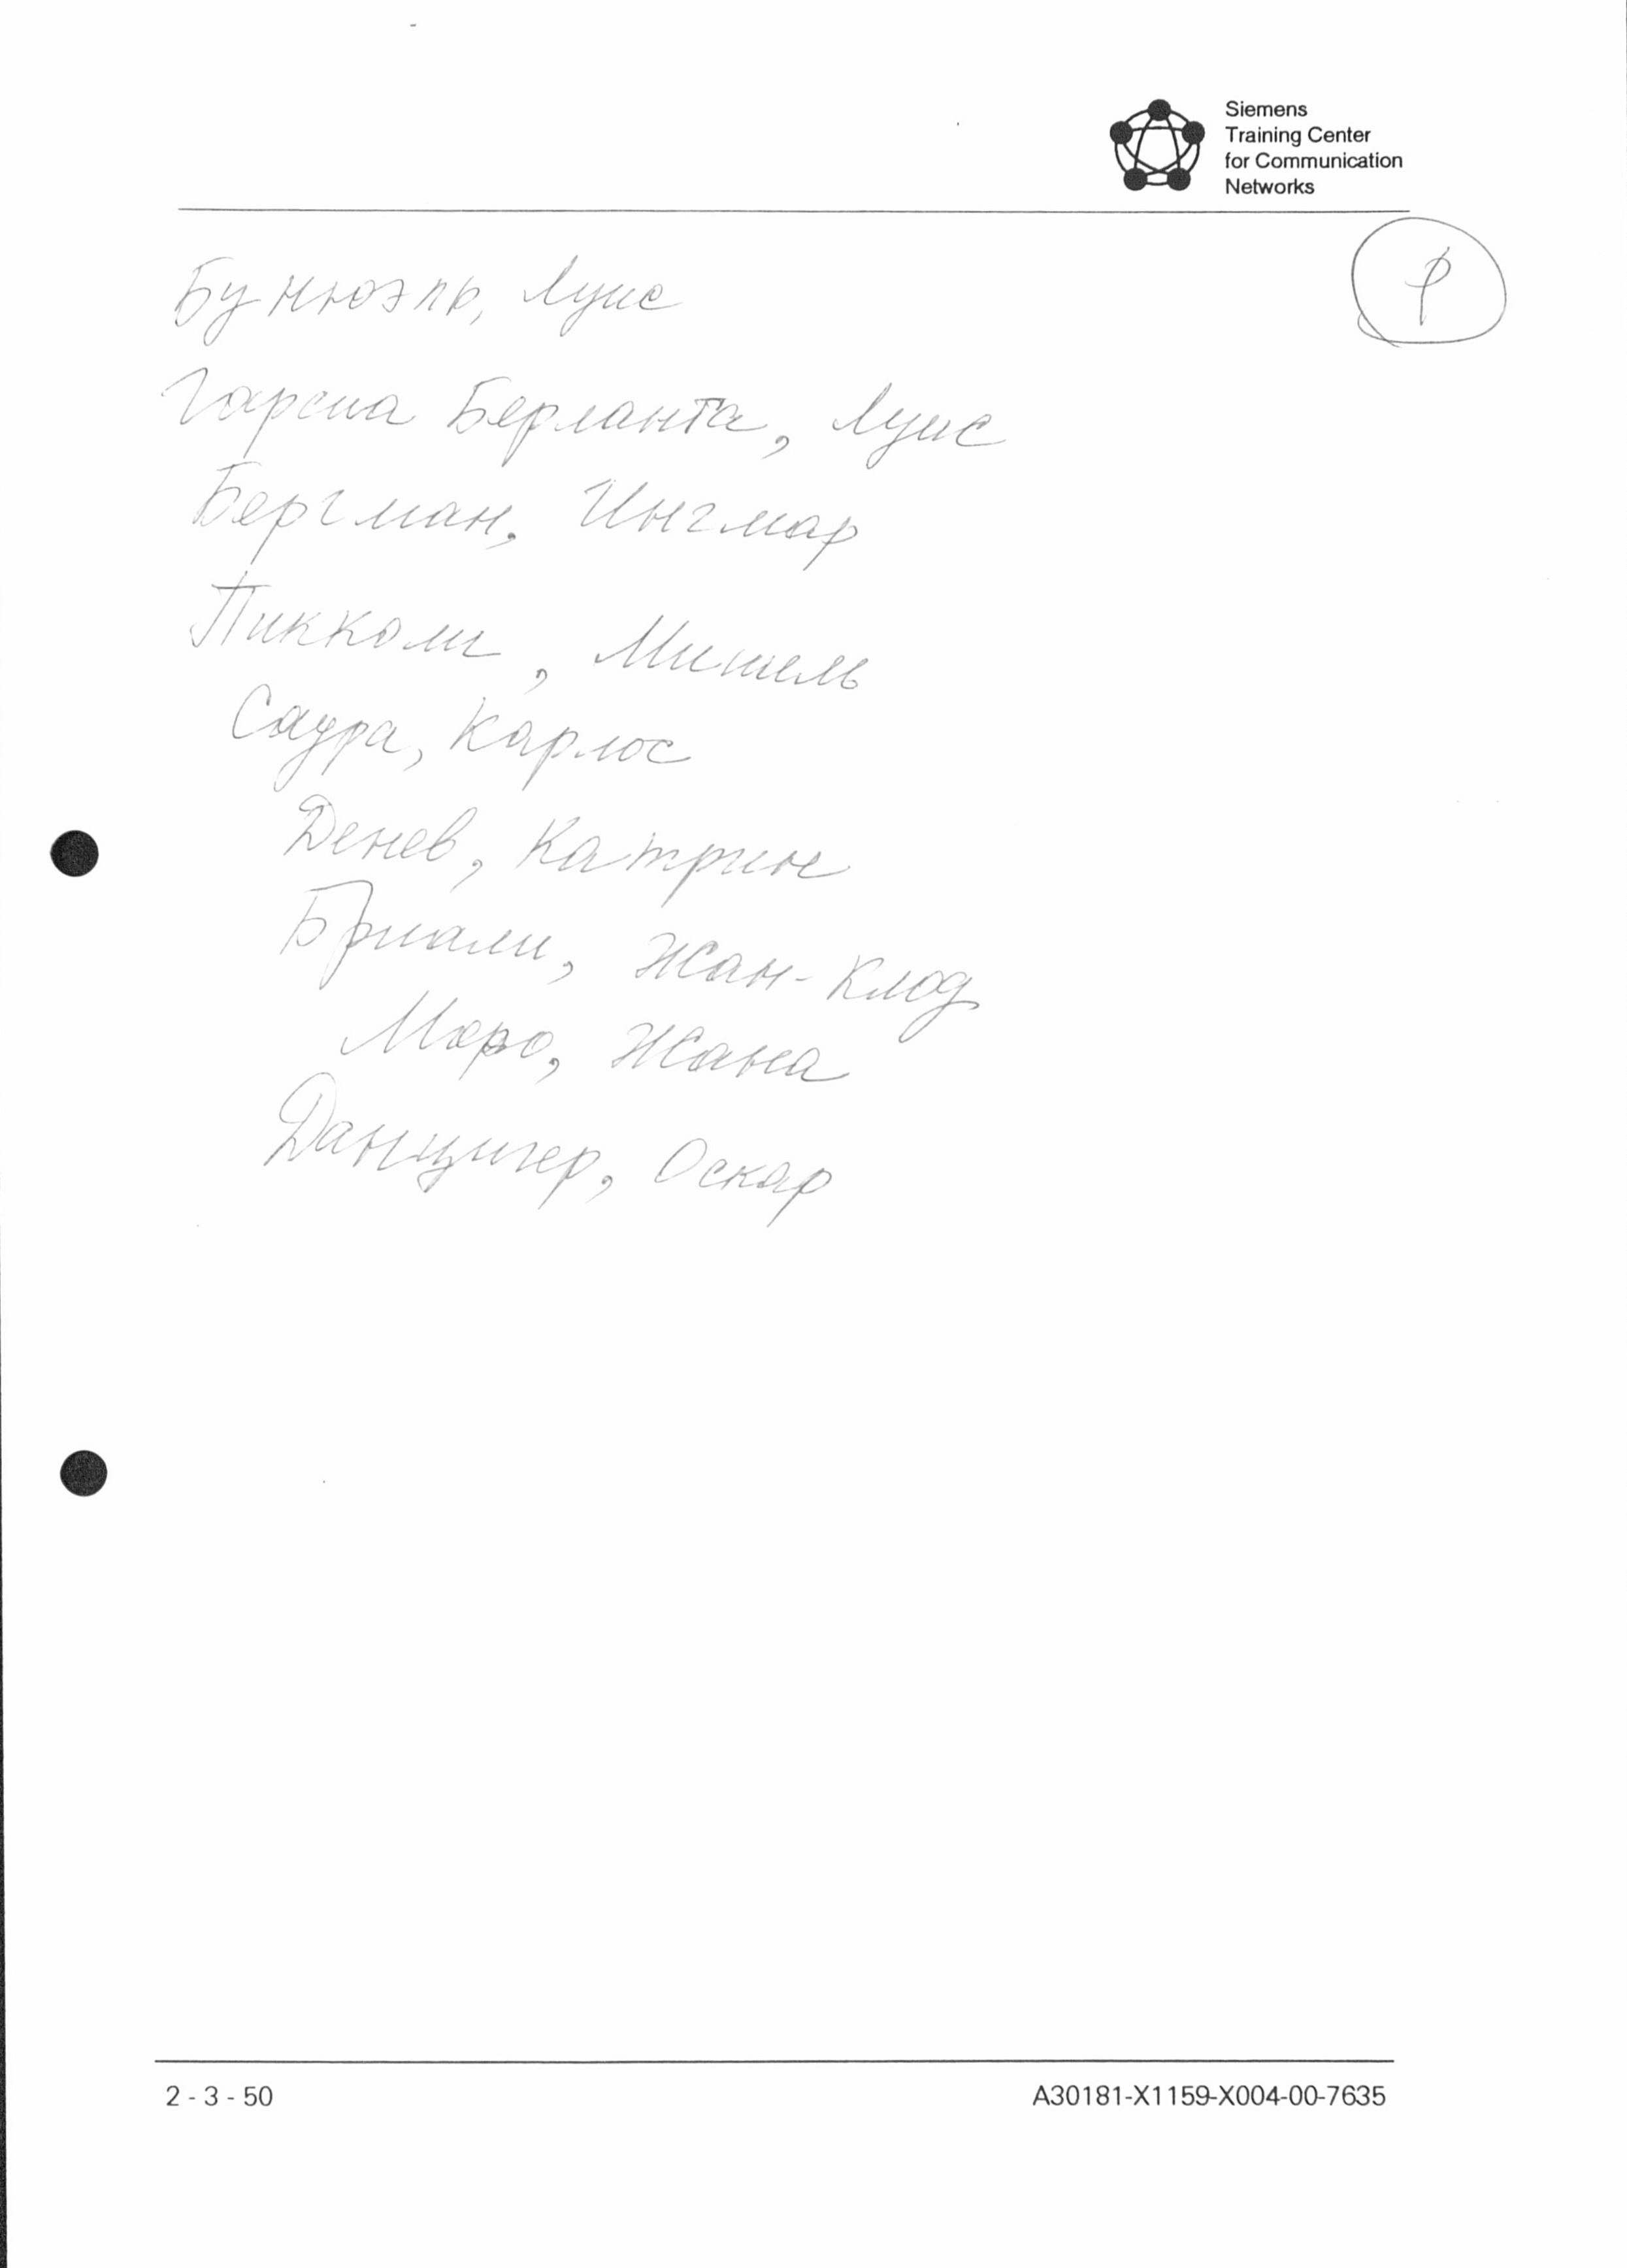 Siemens
Training Center
for Communication
Networks
Ф
Бунюэль, Луис
Гарсиа Берланга, Луис
Бергман, Ингмар
Пикколи, Мишель
Саура, Карлос
Денев, Катрин
Бриали, Жан-Клод
Моро, Жанна
Данцигер, Оскар
2 - 3 - 50
A30181-X1159-X004-00-7635